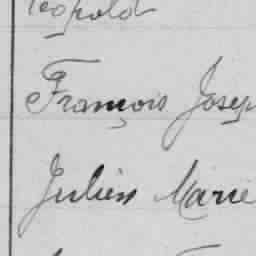 Léopold
François Josep
Julien Marie